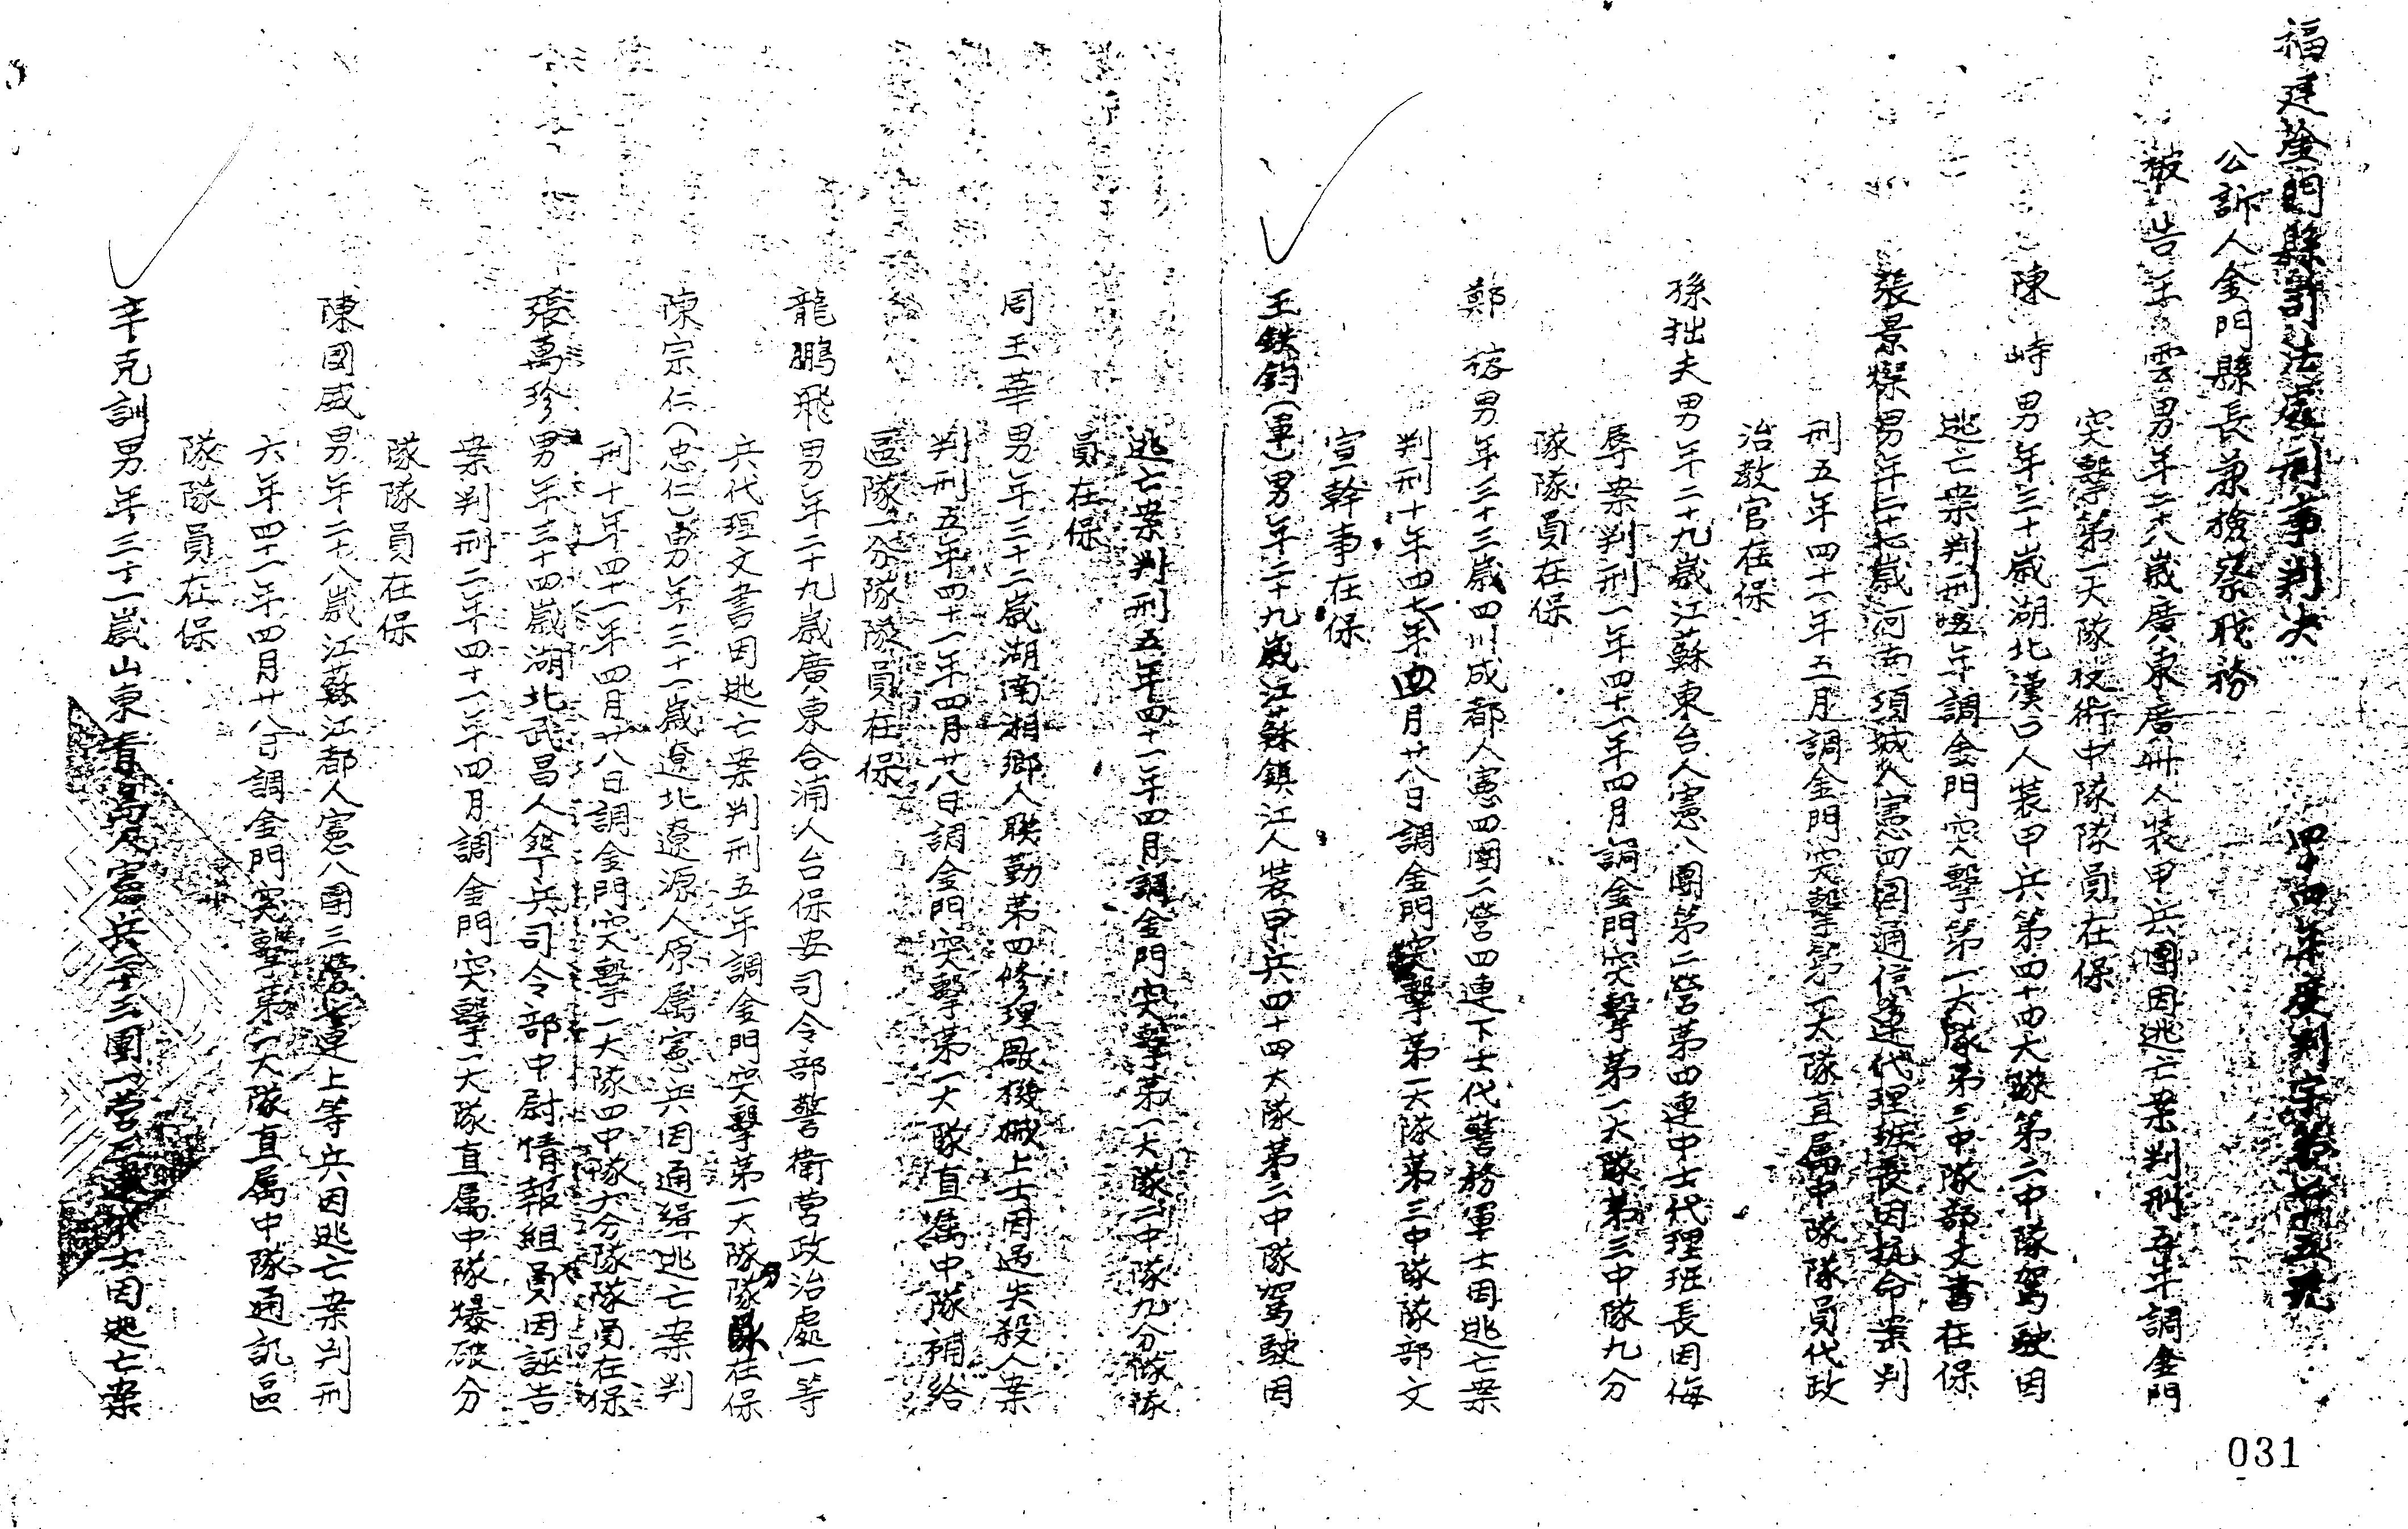 福建金門縣司法處刑事判決 四十四年度判字第廿五号
公訴人金門縣長兼檢察職務
被告年雲男年二十八歲廣東廣州人裝甲兵團因逃亡案判刑五年調金門
突擊第一大隊技術中隊隊員在保
陳 峙男年三十歲湖北漢口人裝甲兵第四十四大隊第二中隊駕駛因
逃亡案判刑五年調金門突擊第一大隊第三中隊部文書在保
張景琛男年二十七歲河南項城人憲四團通信連代理班長因抗命案判
刑五年四十一年五月調金門突擊第一大隊直屬中隊隊員代政
治教官在保
孫拙夫男年二十九歲江蘇東台人憲八團第二營第四連中士代理班長因侮
辱案判刑一年四十一年四月調金門突擊第一大隊第三中隊九分
隊隊員在保
鄭 榕男年三十三歲四川成都人憲四團二營四連下士代警務軍士因逃亡案
判刑十年四十七年四月廿八日調金門突擊第一大隊第三中隊隊部文
宣幹事在保
王鉄鈞(軍)男年二十九歲江蘇鎮江人裝甲兵四十四大隊第二中隊駕駛因
逃亡案判刑五年四十一年四月調金門突擊第一大隊二中隊九分隊隊
員在保
周玉華男年三十二歲湖南湘鄉人聯勤第四修理廠機械上士因過失殺人案
判刑五年四十一年四月廿八日調金門突擊第一大隊直屬中隊補給
區隊一分隊隊員在保
龍鵬飛男年二十九歲廣東合浦人台保安司令部警衛營政治處一等
兵代理文書因逃亡案判刑五年調金門突擊第一大隊隊員在保
陳宗仁(忠仁)男年三十一歲遼北遼源人原屬憲兵因通緝逃亡案判
刑十年四十一年四月廿八日調金門突擊一大隊四中隊六分隊隊員在保
張萬珍男年三十四歲湖北武昌人傘兵司令部中尉情報組員因誣告
案判刑二年四十一年四月調金門突擊一大隊直屬中隊爆破分
隊隊員在保
陳國威男年二十八歲江蘇江都人憲八團三營七連上等兵因逃亡案判刑
六年四十一年四月廿八日調金門突擊第一大隊直屬中隊通訊區
隊隊員在保
辛克訓男年三十一歲山東青島人憲兵二十三團一營三連中士因逃亡案
031